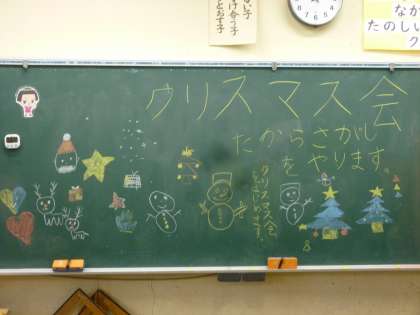 いい子
なげ合う子
とおす子
なか
たのしい
ク
クリスマス会
たからさがし
をやります。
クリスマス会